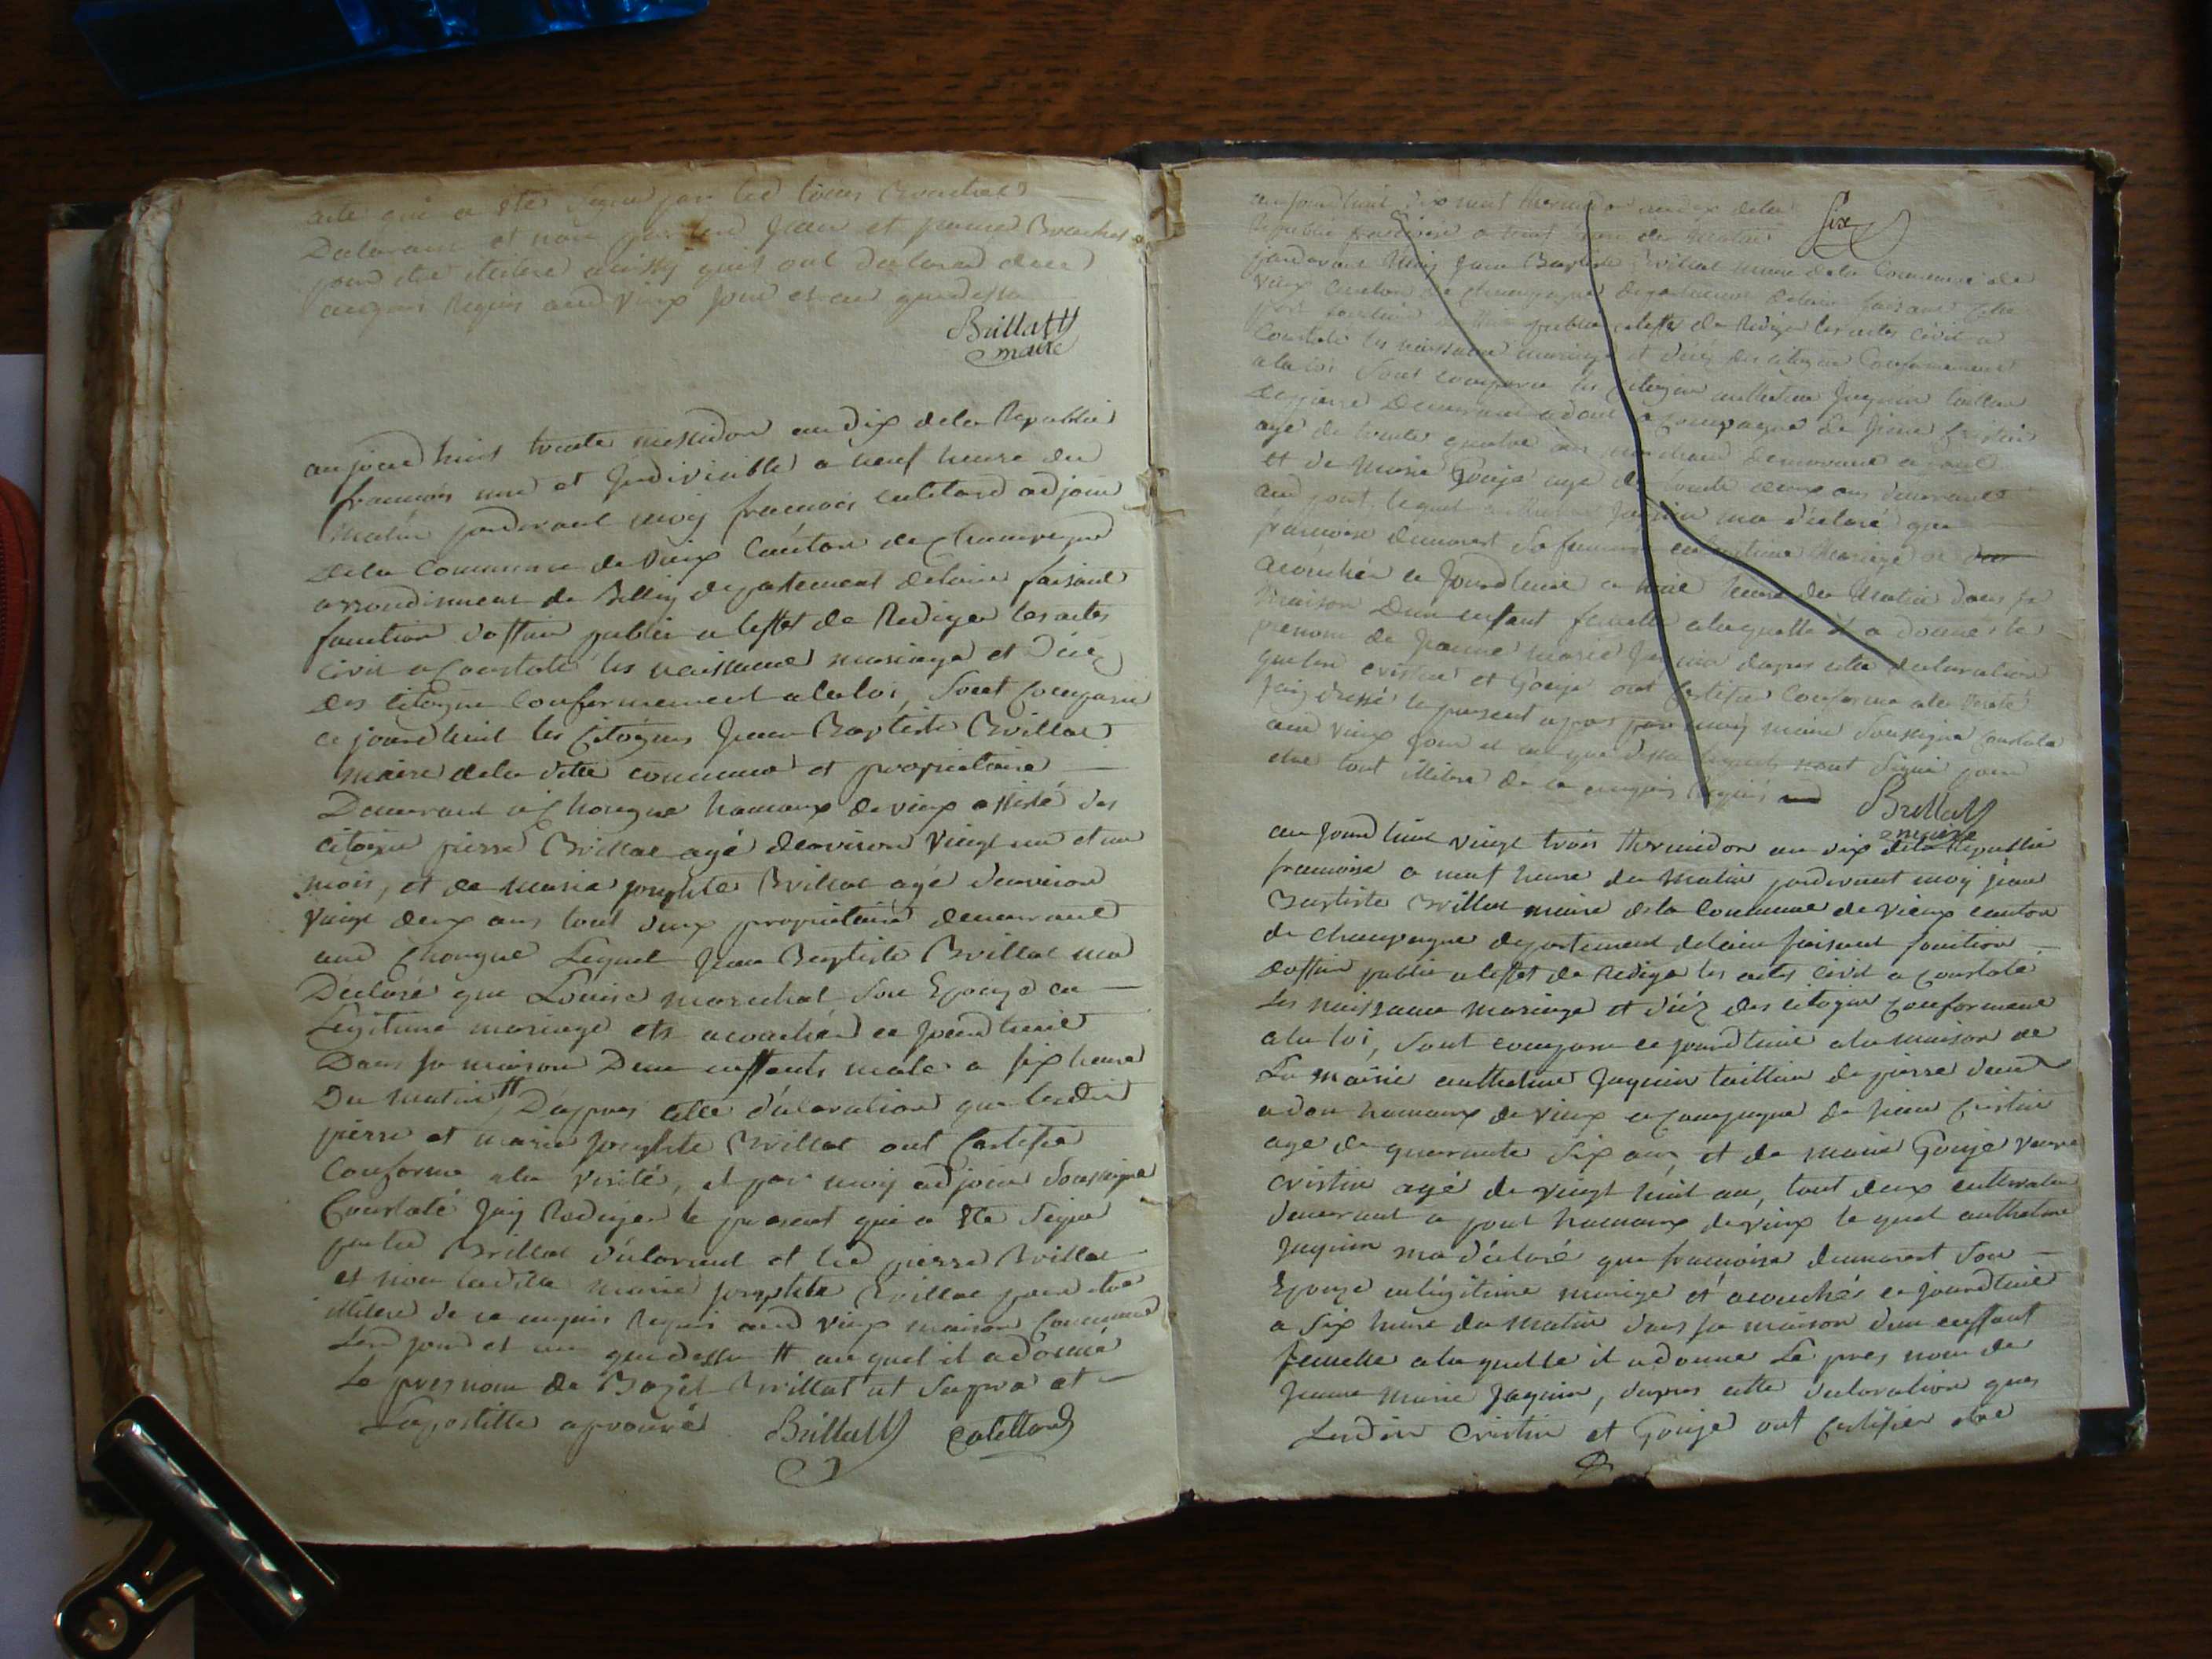 acte qui a été signé par les
Declarant et non par Jean et
pour être illitéré ainssy quil ont declaré de ce
enquis Requis aud vieux jour et an que dessu
Brillat
maire
aujourdhuit trente messidor an dix de la Republic
francois une et Jndivisible a neuf heure du
matin pardevant moy francois catettand adjoin
de la Commune de vieux Canton de Champagne
arrondisment de Belley departement delain faisant
fonction doffiier public a leffet de Rediger les actes
civil a Constaté les naissance mariage et décéz
des citoyen conformement a la loi, sont Comparu
ce jourdhuit les Citoyens Jean Baptiste Brillat
maire de la ditte commune et propriétaire
Demeurant a Chongne hamaux de vieux assisté des
citoyen pierre Brillat agé denviron vingt un et un
mois, et de marie josephte Brillat agé denviron
vingt deux ans tout deux propriétaire demeurant
aud Chongne Lequel Jean Baptiste Brillat ma
Déclaré que Louise marechal son Epouze en
Legitime mariage ets acouchéé ce jourdhuit
Dans sa maison Dun enffants male a six heure
Du matin # Dapres cette déclaration que lesdit
pierre et marie josephte Brillat ont Certifié
Conforme a la vérité, et par moy adjoin soussigné
Constaté Jay Rediger le present qui a été signé
par led Brillat déclarant et led pierre Brillat
et non ladite marie josephte Brillat pour être
illitéré de ce enquis Requis aud vieux maison Commune
Led jour et an que dessu # au quel il a donné
Le pres nom de Bazil Brillat ut supra et
Lapostille aprouvé Brillat catettand
Six
aujourdhuit dix neuf thermidor an dix de la
Republic francoise a huit heure du matin
pardevant moy Jean Baptiste Brillat maire de la Commune de
vieux canton de Champagne departement delain faisant
fonction public a leffet de Rediger les actes civil a
Constaté les naissance mariage et décéz des citoyen Conformement
a la loi sont comparu les citoyen anthelme Jaquin taillieu
De pierre Demeurant a dont a Compagné de Jean Cristin
agé de trente quatre ans demeurant a
et de Marie Gouje agé de trente deux ans demeurant
aud pont, lequel anthelme Jaquin ma déclaré que
francoise demorest sa femme en legitime Mariage
acouchéé ce Jourdhuit a huit heure du Matin dans sa
maison Dun enfant femelle a laquelle il a donné le
prenom de Jeanne Marie Jaquin dapres cette declaration
que les cristin et Gouje ont Certifié Conforme a la verité
Jay dressé le present moy maire soussigné Constaté
aud vieux jour et an que dessu nont signé pour
etre tout illitéré de ce enquis Requis
Brillat
maire
aujourdhuit vingt trois thermidor an dix de la Republic
francoise a neuf heure du matin pardevant moy jean
Baptiste Brillat maire de la Commune de vieux canton
de champagne departement delain faisant fonction
doffiier public a leffet de Rediger les actes civil a Constaté
Les naissance mariage et décéz des citoyen Conforment
a la loi, sont comparu ce jourdhuit a la maison de
La mairie anthelme Jaquin taillieu de pierre demt
a don hamaux de vieux a Compagné de jean Cristin
agé de quarante six ans, et de marie Gouje veuve
cristin agé de vingt huit an, tout deux cultivateu
demeurant a pont hamaux de vieux le quel anthelme
Jaquin ma déclaré que francoise demorest son
Epouze en légitime mariage et acouchéé ce jourdhuit
a six heure du matin dans sa maison dun enffant
femelle a la quelle il a donné Le pres nom de
Jeanne marie Jaquin, dapres cette declaration que
Lesdit Cristin et Gouje ont Certifier etre